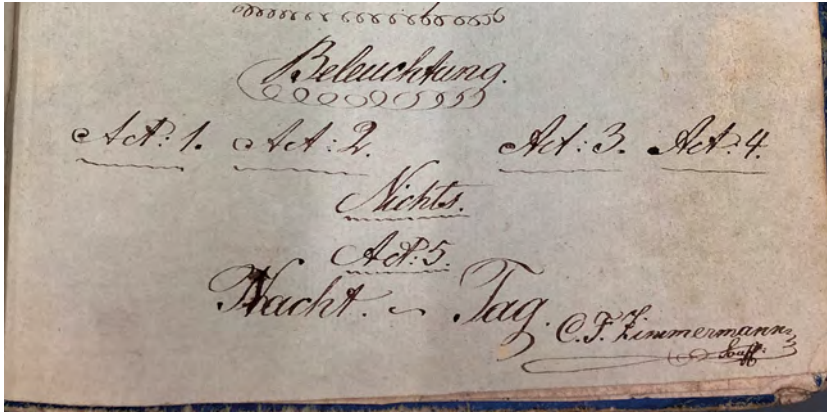 Beleuchtung.
Act: 1. Act: 2. Act: 3. Act: 4.
Nichts.
Act: 5.
Nacht. ~ Tag.
C. F. Zimmermann
Souffl: